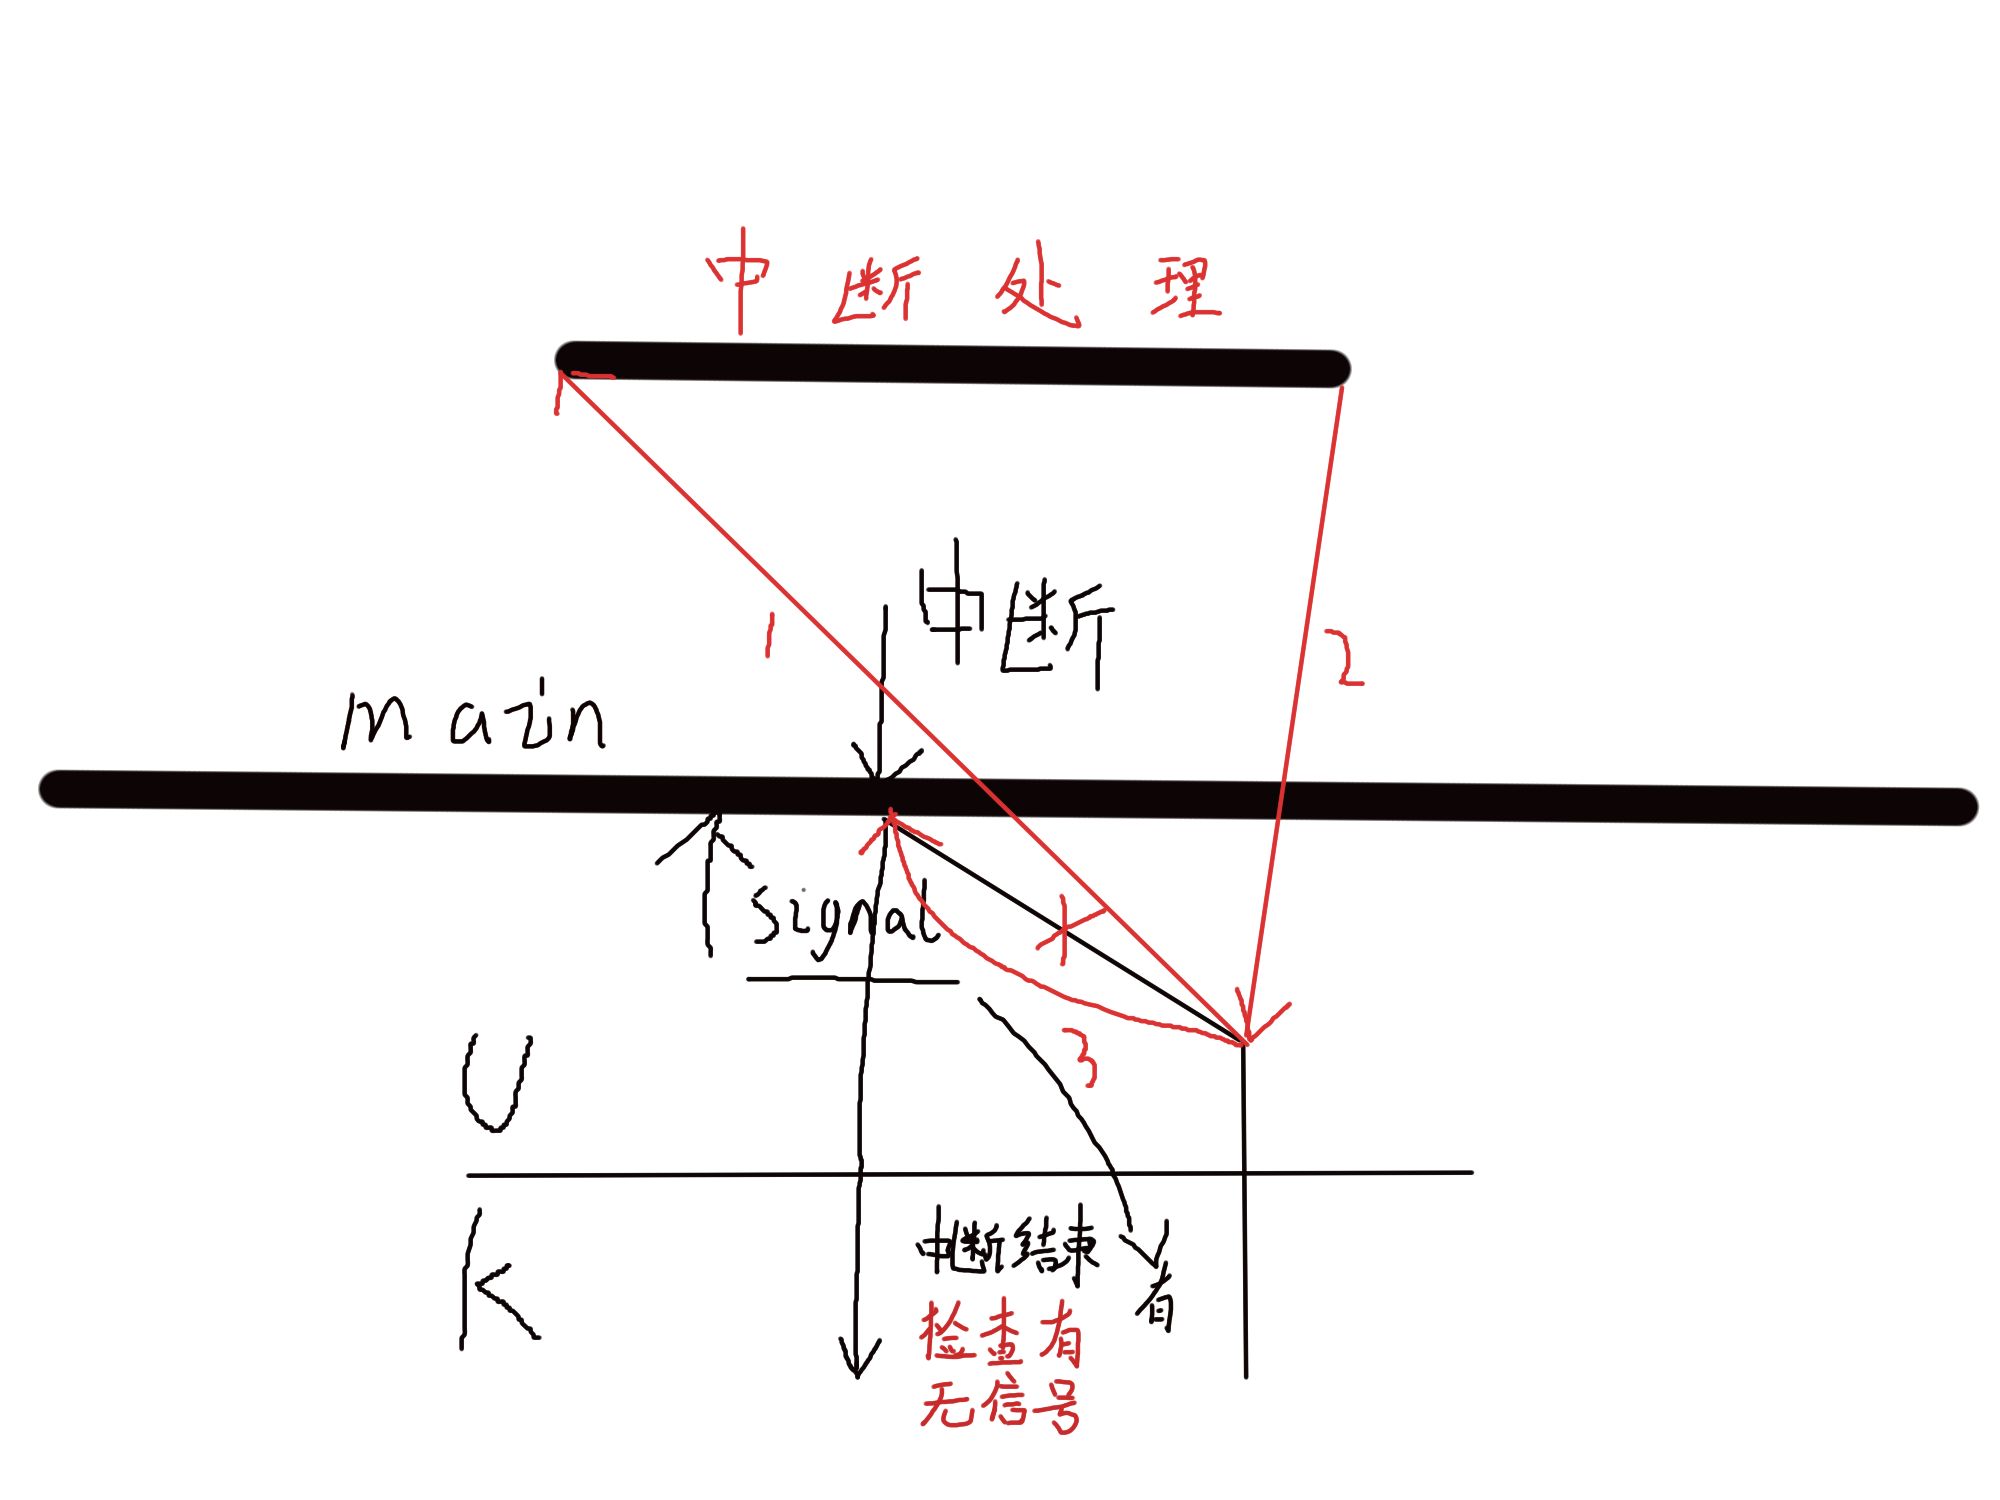 中断处理
中断
1
2
main
signal
3
U
K
中断结束
有
检查有
无信号